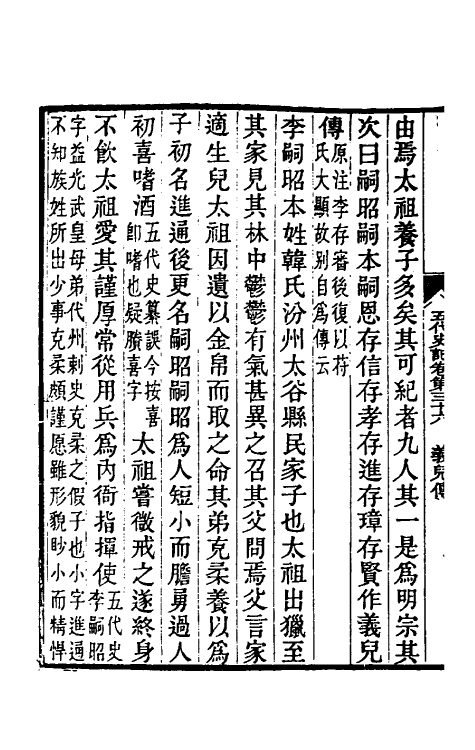 五代史記卷第三十六　義兒傳
由焉太祖養子多矣其可紀者九人其一是爲明宗其
次曰嗣昭嗣本嗣恩存信存孝存進存璋存賢作義兒
傳
原注李存審後復以苻
氏大顯故别自爲傳云
李嗣昭本姓韓氏汾州太谷縣民家子也太祖出獵至
其家見其林中鬱鬱有氣甚異之召其父問焉父言家
適生兒太祖因遺以金帛而取之命其弟克柔養以爲
子初名進通後更名嗣昭嗣昭爲人短小而膽勇過人
初喜嗜酒
五代史纂誤今按喜
卽嗜也疑賸喜字
太祖嘗微戒之遂終身
不飲太祖愛其謹厚常從用兵爲内衙指揮使
五代史
李嗣昭
字益光武皇母弟代州刺史克柔之假子也小字進通
不知族姓所出少事克柔頗謹愿雖形貌眇小而精悍